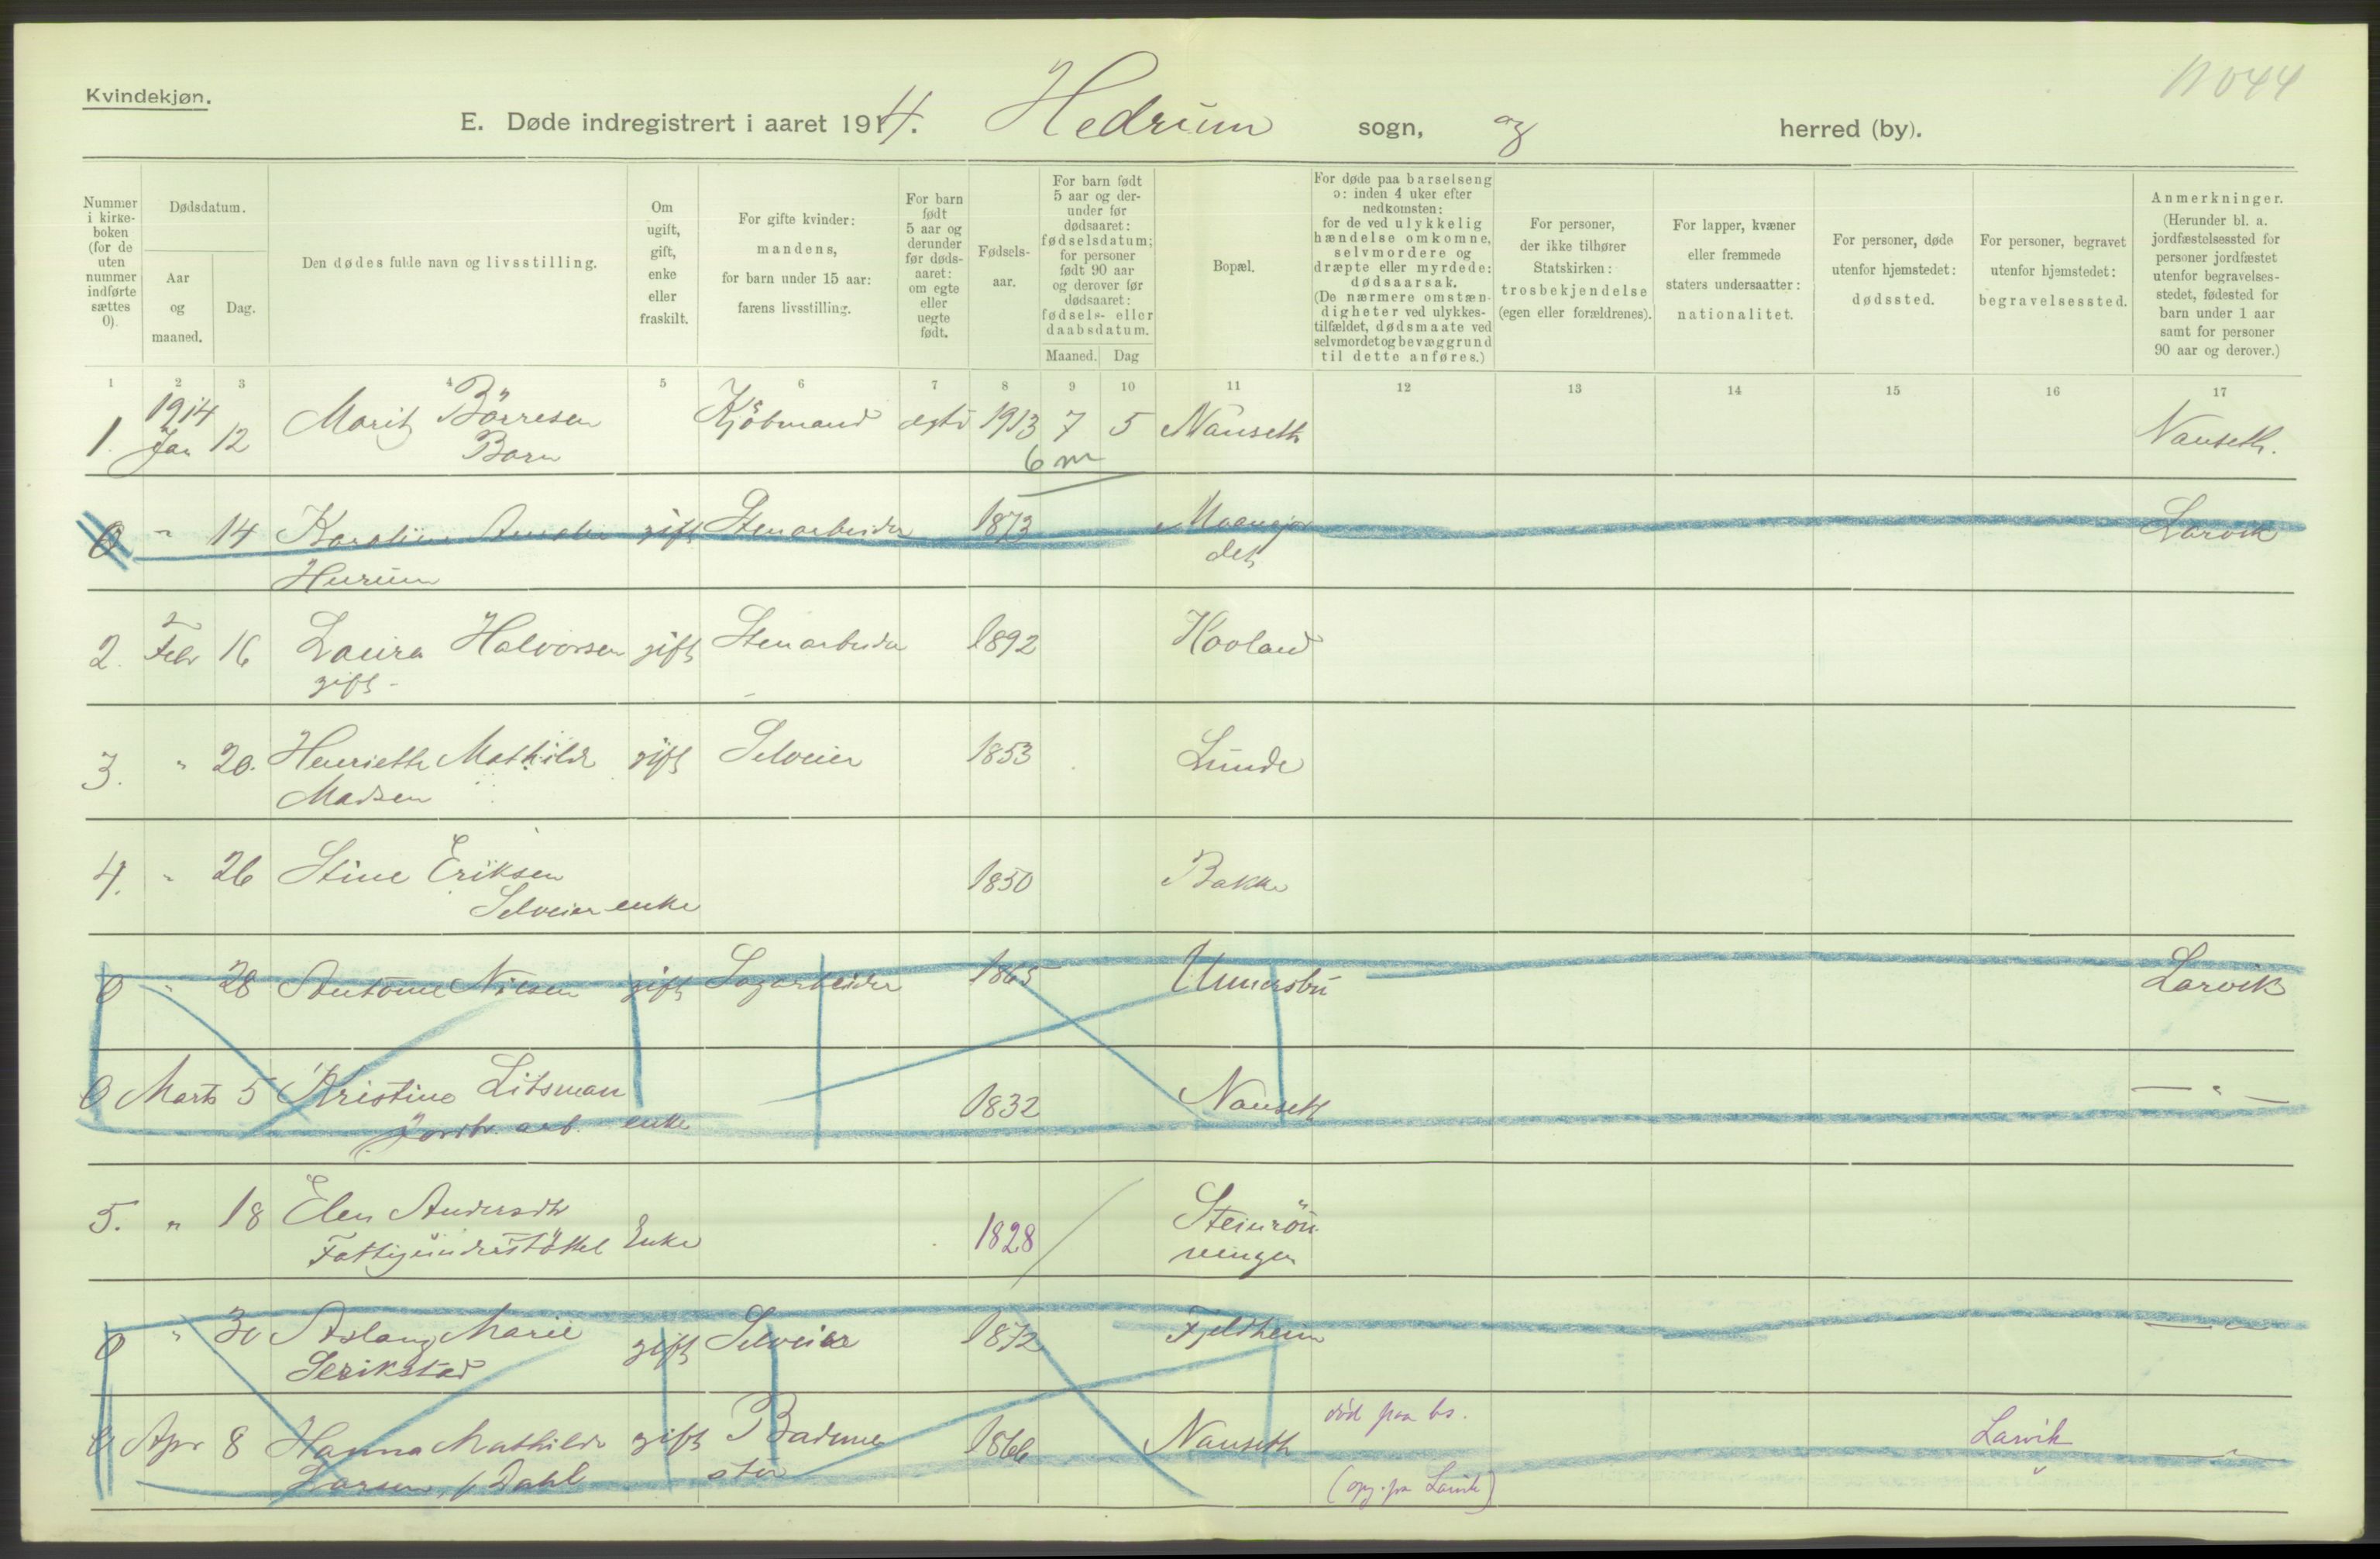 Kvindekjøn.
11044
E. Døde indregistrert i aaret 1914. Hedrum sogn, og herred (by).
Nummer i kirke-boken (for de uten nummer indførte sættes 0).
Dødsdatum.
Aar og maaned.
Dag.
Den dødes fulde navn og livsstilling.
Om ugift, gift, enke eller fraskilt.
For gifte kvinder: mandens, for barn under 15 aar: farens livsstilling.
For barn født 5 aar og derunder før døds-aaret: om egte eller uegte født.
Fødsels-aar.
For barn født 5 aar og der-under før dødsaaret: fødselsdatum; for personer født 90 aar og derover før dødsaaret: fødsels- eller daabsdatum.
Maaned. Dag
Bopæl.
For døde paa barselseng ɔ: inden 4 uker efter nedkomsten: for de ved ulykkelig hændelse omkomne, selvmordere og dræpte eller myrdede: dødsaarsak. (De nærmere omstæn-digheter ved ulykkes-tilfældet, dødsmaate ved selvmordet og bevæggrund til dette anføres.)
For personer, der ikke tilhører Statskirken: trosbekjendelse (egen eller forældrenes).
For lapper, kvæner eller fremmede staters undersaatter: nationalitet.
For personer, døde utenfor hjemstedet: dødssted.
For personer, begravet utenfor hjemstedet: begravelsessted.
Anmerkninger. (Herunder bl. a. jordfæstelsessted for personer jordfæstet utenfor begravelses-stedet, fødested for barn under 1 aar samt for personer 90 aar og derover.)
1 2 3 4 5 6 7 8 9 10 11 12 13 14 15 16 17
1914
1. Jan 12 Marit Börresen Kjöbmand egte 1913 7 5 Nanseth Nanseth.
Barn 6 m
0 " 14 Karoline Amalie gift Stenarbeider 1873 Moengjor Larvik
Hurum det
2
2. Febr 16 Laura Halvorsen gift Stenarbeider 1892 Kvoland
gift -
3. " 20. Henriette Mathilde gift Selveier 1853 Lunde
Madsen
4. " 26 Stine Eriksen 1850 Bakke
Selveier enke
0 " 28 Antonie Nilsen gift Sagarbeider 1865 Unnersbu Larvik
0 Marts 5 Kristine Litsman 1832 Nanseth — " —
Jordbr. arb. enke
5. " 18 Elen Andersdtr 1828 Steinrön
Fattigunderstöttet Enke ningen
0 " 30 Aslaug Marie gift Selveier 1872 Fjeldheim — " —
Serikstad
død paa hs.
0 Apr 8 Hanna Mathilde gift Badme 1866 Nanseth Larvik — " —
Larsen, f Dahl ster (opg. fra Larvik)